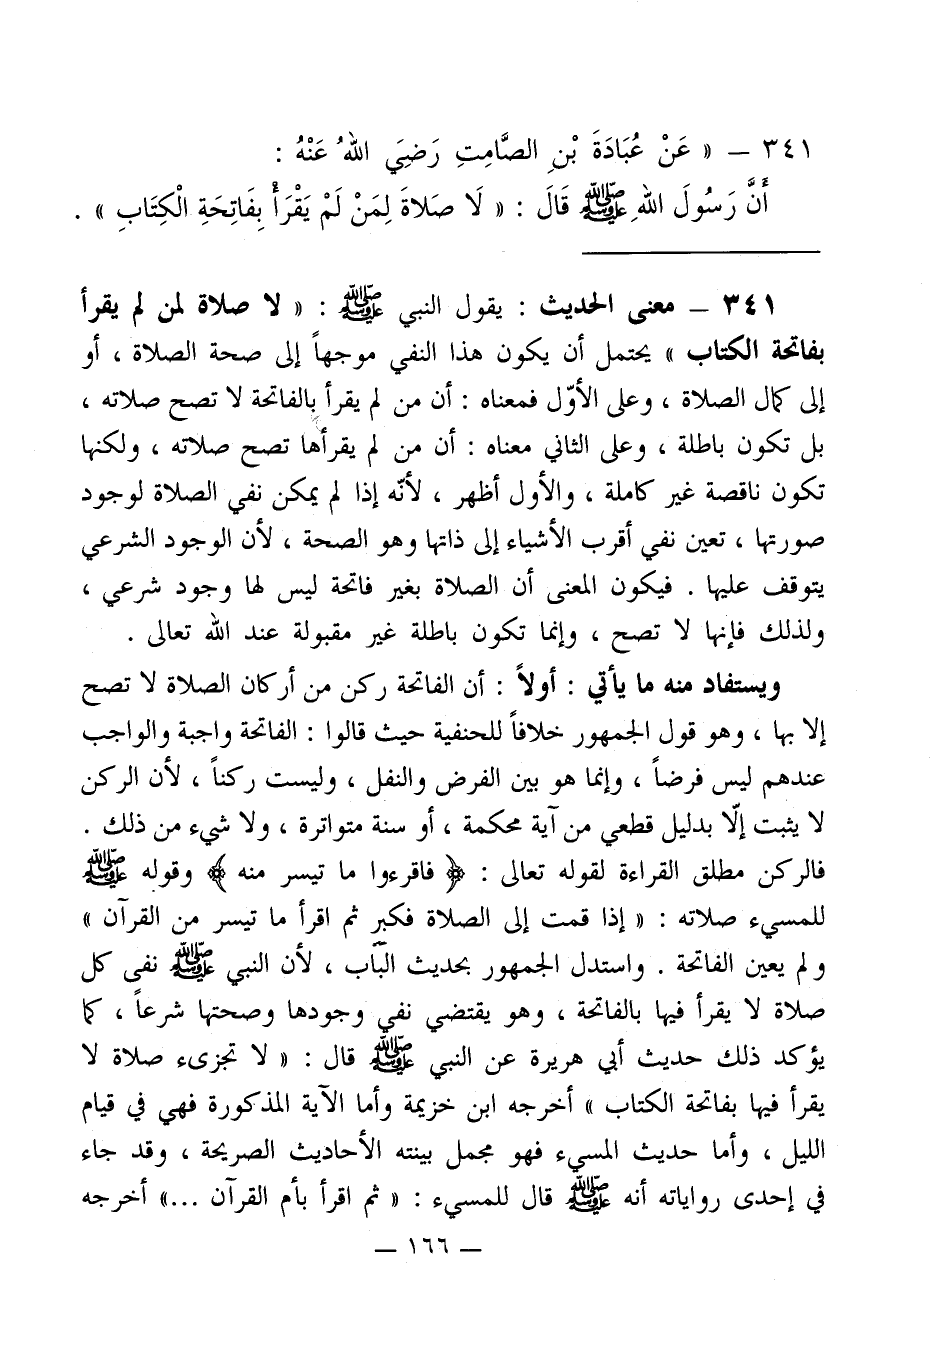 ٣٤١ – « عَنْ عُبَادَةَ بْنِ الصَّامِتِ رَضِيَ اللهُ عَنْهُ :
أَنَّ رَسُولَ اللهِ ﷺ قَالَ : « لَا صَلَاةَ لِمَنْ لَمْ يَقْرَأْ بِفَاتِحَةِ الْكِتَابِ » .
٣٤١ – معنى الحديث : يقول النبي ﷺ : « لا صلاة لمن لم يقرأ
بفاتحة الكتاب » يحتمل أن يكون هذا النفي موجهاً إلى صحة الصلاة ، أو
إلى كمال الصلاة ، وعلى الأوّل فمعناه : أن من لم يقرأ بالفاتحة لا تصح صلاته ،
بل تكون باطلة ، وعلى الثاني معناه : أن من لم يقرأها تصح صلاته ، ولكنها
تكون ناقصة غير كاملة ، والأول أظهر ، لأنّه إذا لم يمكن نفي الصلاة لوجود
صورتها ، تعين نفي أقرب الأشياء إلى ذاتها وهو الصحة ، لأن الوجود الشرعي
يتوقف عليها . فيكون المعنى أن الصلاة بغير فاتحة ليس لها وجود شرعي ،
ولذلك فإنها لا تصح ، وإنما تكون باطلة غير مقبولة عند الله تعالى .
ويستفاد منه ما يأتي : أولاً : أن الفاتحة ركن من أركان الصلاة لا تصح
إلا بها ، وهو قول الجمهور خلافاً للحنفية حيث قالوا : الفاتحة واجبة والواجب
عندهم ليس فرضاً ، وإنما هو بين الفرض والنفل ، وليست ركناً ، لأن الركن
لا يثبت إلّا بدليل قطعي من آية محكمة ، أو سنة متواترة ، ولا شيء من ذلك .
فالركن مطلق القراءة لقوله تعالى : ﴿ فاقرءوا ما تيسر منه ﴾ وقوله ﷺ
للمسيء صلاته : « إذا قمت إلى الصلاة فكبر ثم اقرأ ما تيسر من القرآن »
ولم يعين الفاتحة . واستدل الجمهور بحديث الباب ، لأن النبي ﷺ نفى كل
صلاة لا يقرأ فيها بالفاتحة ، وهو يقتضي نفي وجودها وصحتها شرعاً ، كما
يؤكد ذلك حديث أبي هريرة عن النبي ﷺ قال : « لا تجزىء صلاة لا
يقرأ فيها بفاتحة الكتاب » أخرجه ابن خزيمة وأما الآية المذكورة فهي في قيام
الليل ، وأما حديث المسيء فهو مجمل بينته الأحاديث الصريحة ، وقد جاء
في إحدى رواياته أنه ﷺ قال للمسيء : « ثم اقرأ بأم القرآن ...» أخرجه
– ١٦٦ –